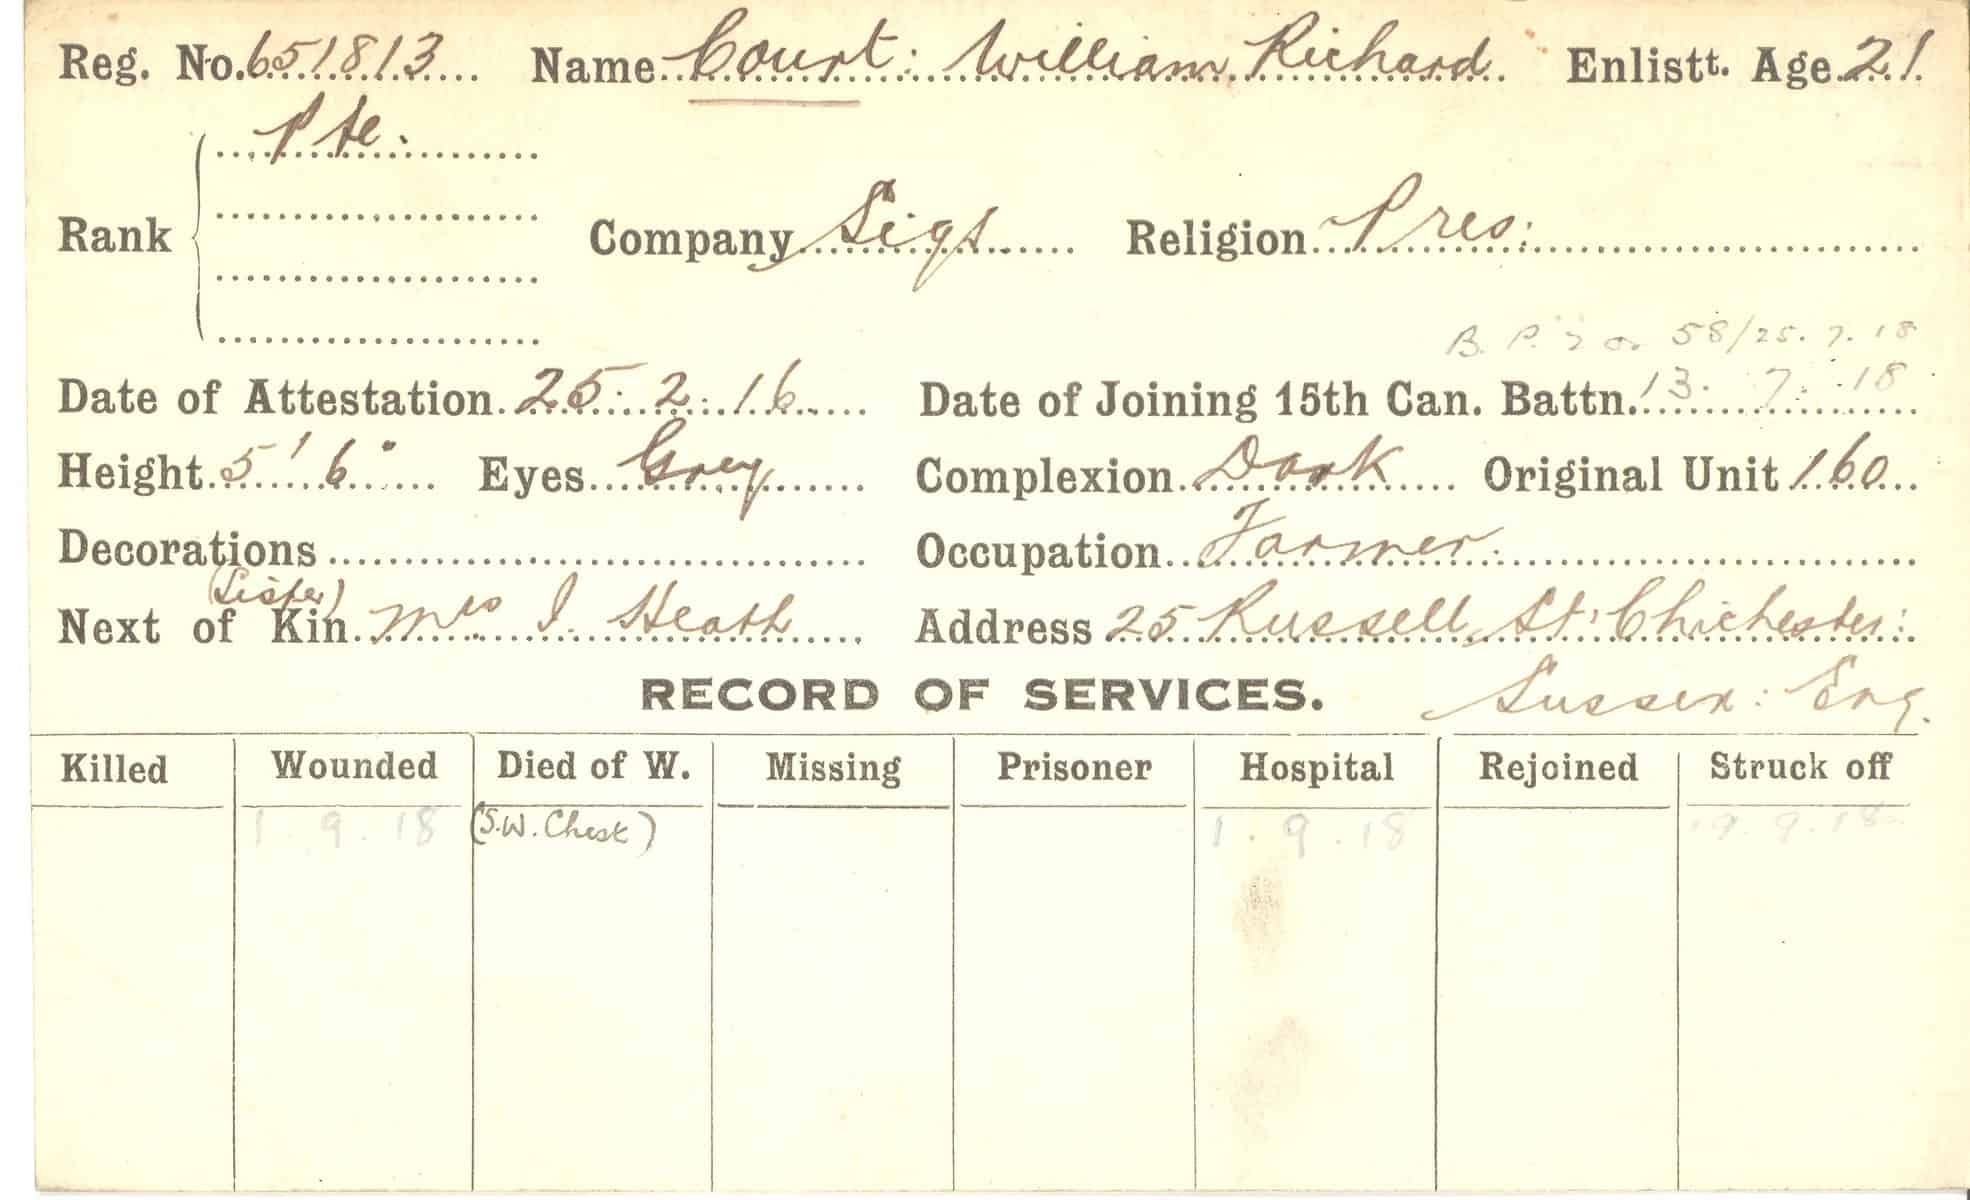 Reg. No. 651813 Name Court: William Richard Enlistt. Age 21
Pte.
Rank Company Sigs Religion Pres:
B. P. 58/25.7.18
Date of Attestation 25.2.16 Date of Joining 15th Can. Battn. 13.7.18
Height 5'6" Eyes Grey Complexion Dark Original Unit 160
Decorations Occupation Farmer.
(Sister)
Next of Kin Mrs I. Heath Address 25 Russell St: Chichester:
RECORD OF SERVICES. Sussex: Eng.
Killed Wounded Died of W. Missing Prisoner Hospital Rejoined Struck off
1.9.18 (S.W. Chest) 1.9.18 9.18